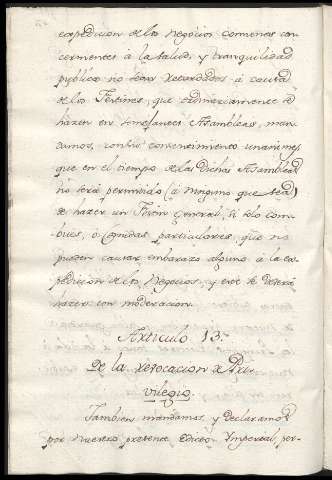 expedicion de los negocios comunes con
cernientes à la salud, y tranquilidad
publica no sean retardados à causa
de los Festines, que ordinariamente se
hazen en semejantes Asambleas, man
damos, con su consentimiento unanime,
que en el tiempo de las dichas Asambleas
no será permitido (à ninguno que sea)
de hazer un Festin General, si solo com
bites, o comidas particulares, que no
pueden causar embarazo alguno à la ex
pedicion de los negocios, y esto se deverá
hazer con moderacion.
Articulo 13.
De la revocacion de Pri
vilegio.
Tambien mandamos, y declaramos
por nuestro presente Edicto Imperial, per-